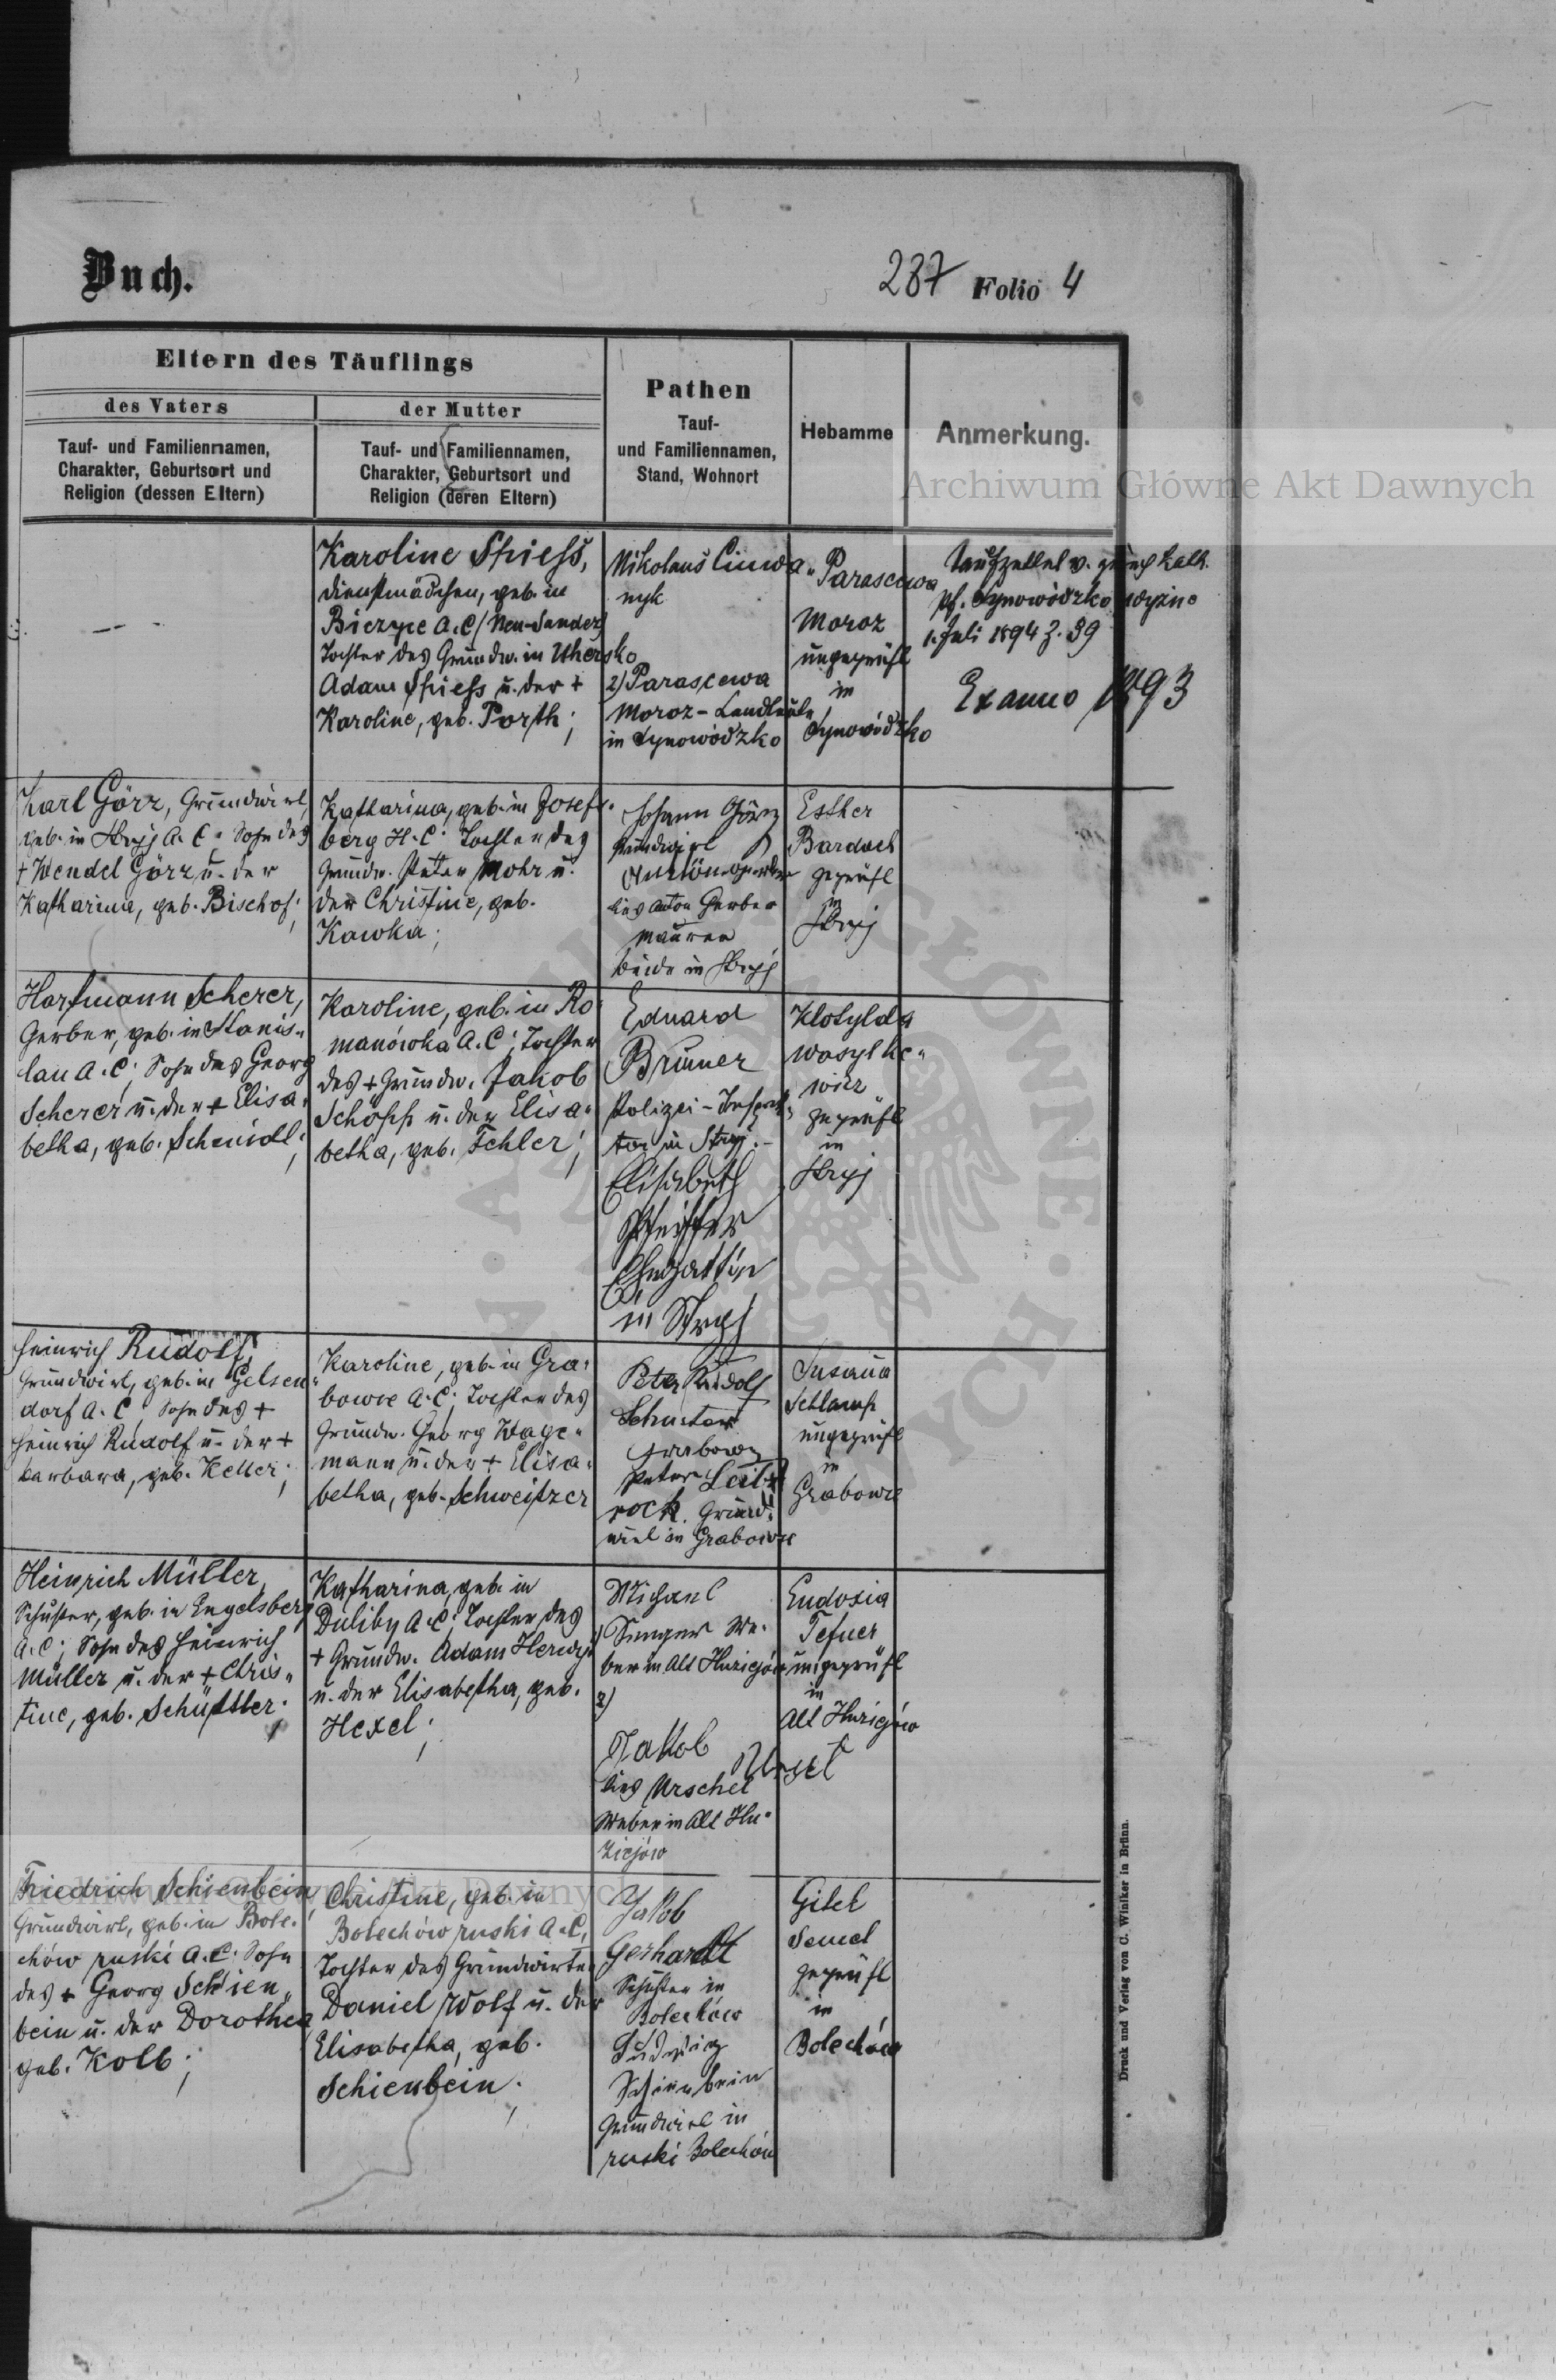 Buch.
287 Folio 4
Eltern des Täuflings
des Vaters
Tauf- und Familiennamen,
Charakter, Geburtsort und
Religion (dessen Eltern)
der Mutter
Tauf- und Familiennamen,
Charakter, Geburtsort und
Religion (deren Eltern)
Pathen
Tauf-
und Familiennamen,
Stand, Wohnort
Hebamme
Anmerkung.
Archiwum Główne Akt Dawnych
Karoline Spiess,
Dienstmädchen, geb. in
Biczyce A.C (Neu-Sandez)
Tochter des Grundw. in Uhersko
Adam Spiess u. der +
Karoline, geb. Porth;
Nikolaus
nyk
2) Parascewa
Moroz - Landleute
in Synowódzko
Parascewa
Moroz
ungeprüft
in
Synowódzko
Taufzettel v. kath.
Pf. Synowódzko wyżne
1. Juli 1894 Z. 89
Ex anno 1893
Karl Görz, Grundwirt,
geb. in Stryj A.C; Sohn des
+ Wendel Görz u. der
Katharina, geb. Bischof;
Katharina, geb. in Josefs-
berg H.C; Tochter des
Grundw. Peter Mohr u.
der Christine, geb.
Kawka;
Johann Görz
Grundwirt
lies Anton Gerber
Maurer
beide in Stryj
Esther
Bardach
geprüft
in
Stryj
Hartmann Scherer,
Gerber, geb. in Stanis-
lau A.C; Sohn des Georg
Scherer u. der + Elisa-
betha, geb. Schmidt;
Karoline, geb. in Ro-
manówka A.C; Tochter
des + Grundw. Jakob
Schöpp u. der Elisa-
betha, geb. Fehler;
Eduard
Brunner
Polizei-Inspek-
tor in Stryj.-
Elisabeth
Pfeiffer
Ehegattin
in Stryj
Klotylda
Wasylke-
wicz
geprüft
in
Stryj
Heinrich Rudolf,
Grundwirt, geb. in Gelsen-
dorf A.C, Sohn des +
Heinrich Rudolf u. der +
Barbara, geb. Keller;
Karoline, geb. in Gra-
bowce A.C; Tochter des
Grundw. Georg Wage-
mann u. der + Elisa-
betha, geb. Schweitzer
Peter Rudolf
Schuster
Grabowce
Peter
rock. Grund-
wirt in Grabowce
Susana
Schlamp
ungeprüft
in
Grabowce
Heinrich Müller,
Schuster, geb. in Engelsberg
A.C; Sohn des Heinrich
Müller u. der + Chris-
tine, geb. Schüttler;
Katharina, geb. in
Duliby A.C; Tochter des
+ Grundw. Adam Herwy
u. der Elisabetha, geb.
Hexel;
Michael
Senger We-
ber in Alt Huziejów
2)
Jakob Ursel
lies Urschel
Weber in Alt Hu-
ziejów
Eudoxia
Tefuer
ungeprüft
in
Alt Huziejów
Friedrich Schienbein,
Grundwirt, geb. in Bole-
chów ruski A.C; Sohn
des + Georg Schien-
bein u. der Dorothea
geb. Kolb;
Christine, geb. in
Bolechów ruski A.C,
Tochter des Grundwirten
Daniel Wolf u. der
Elisabetha, geb.
Schienbein;
Jakob
Gerhardt
Schuster in
Bolechów
Ludwig
Schienbein
Grundwirt in
ruski Bolechów
Gitel
Semel
geprüft
in
Bolechów
Druck und Verlag von C. Winiker in Brünn.